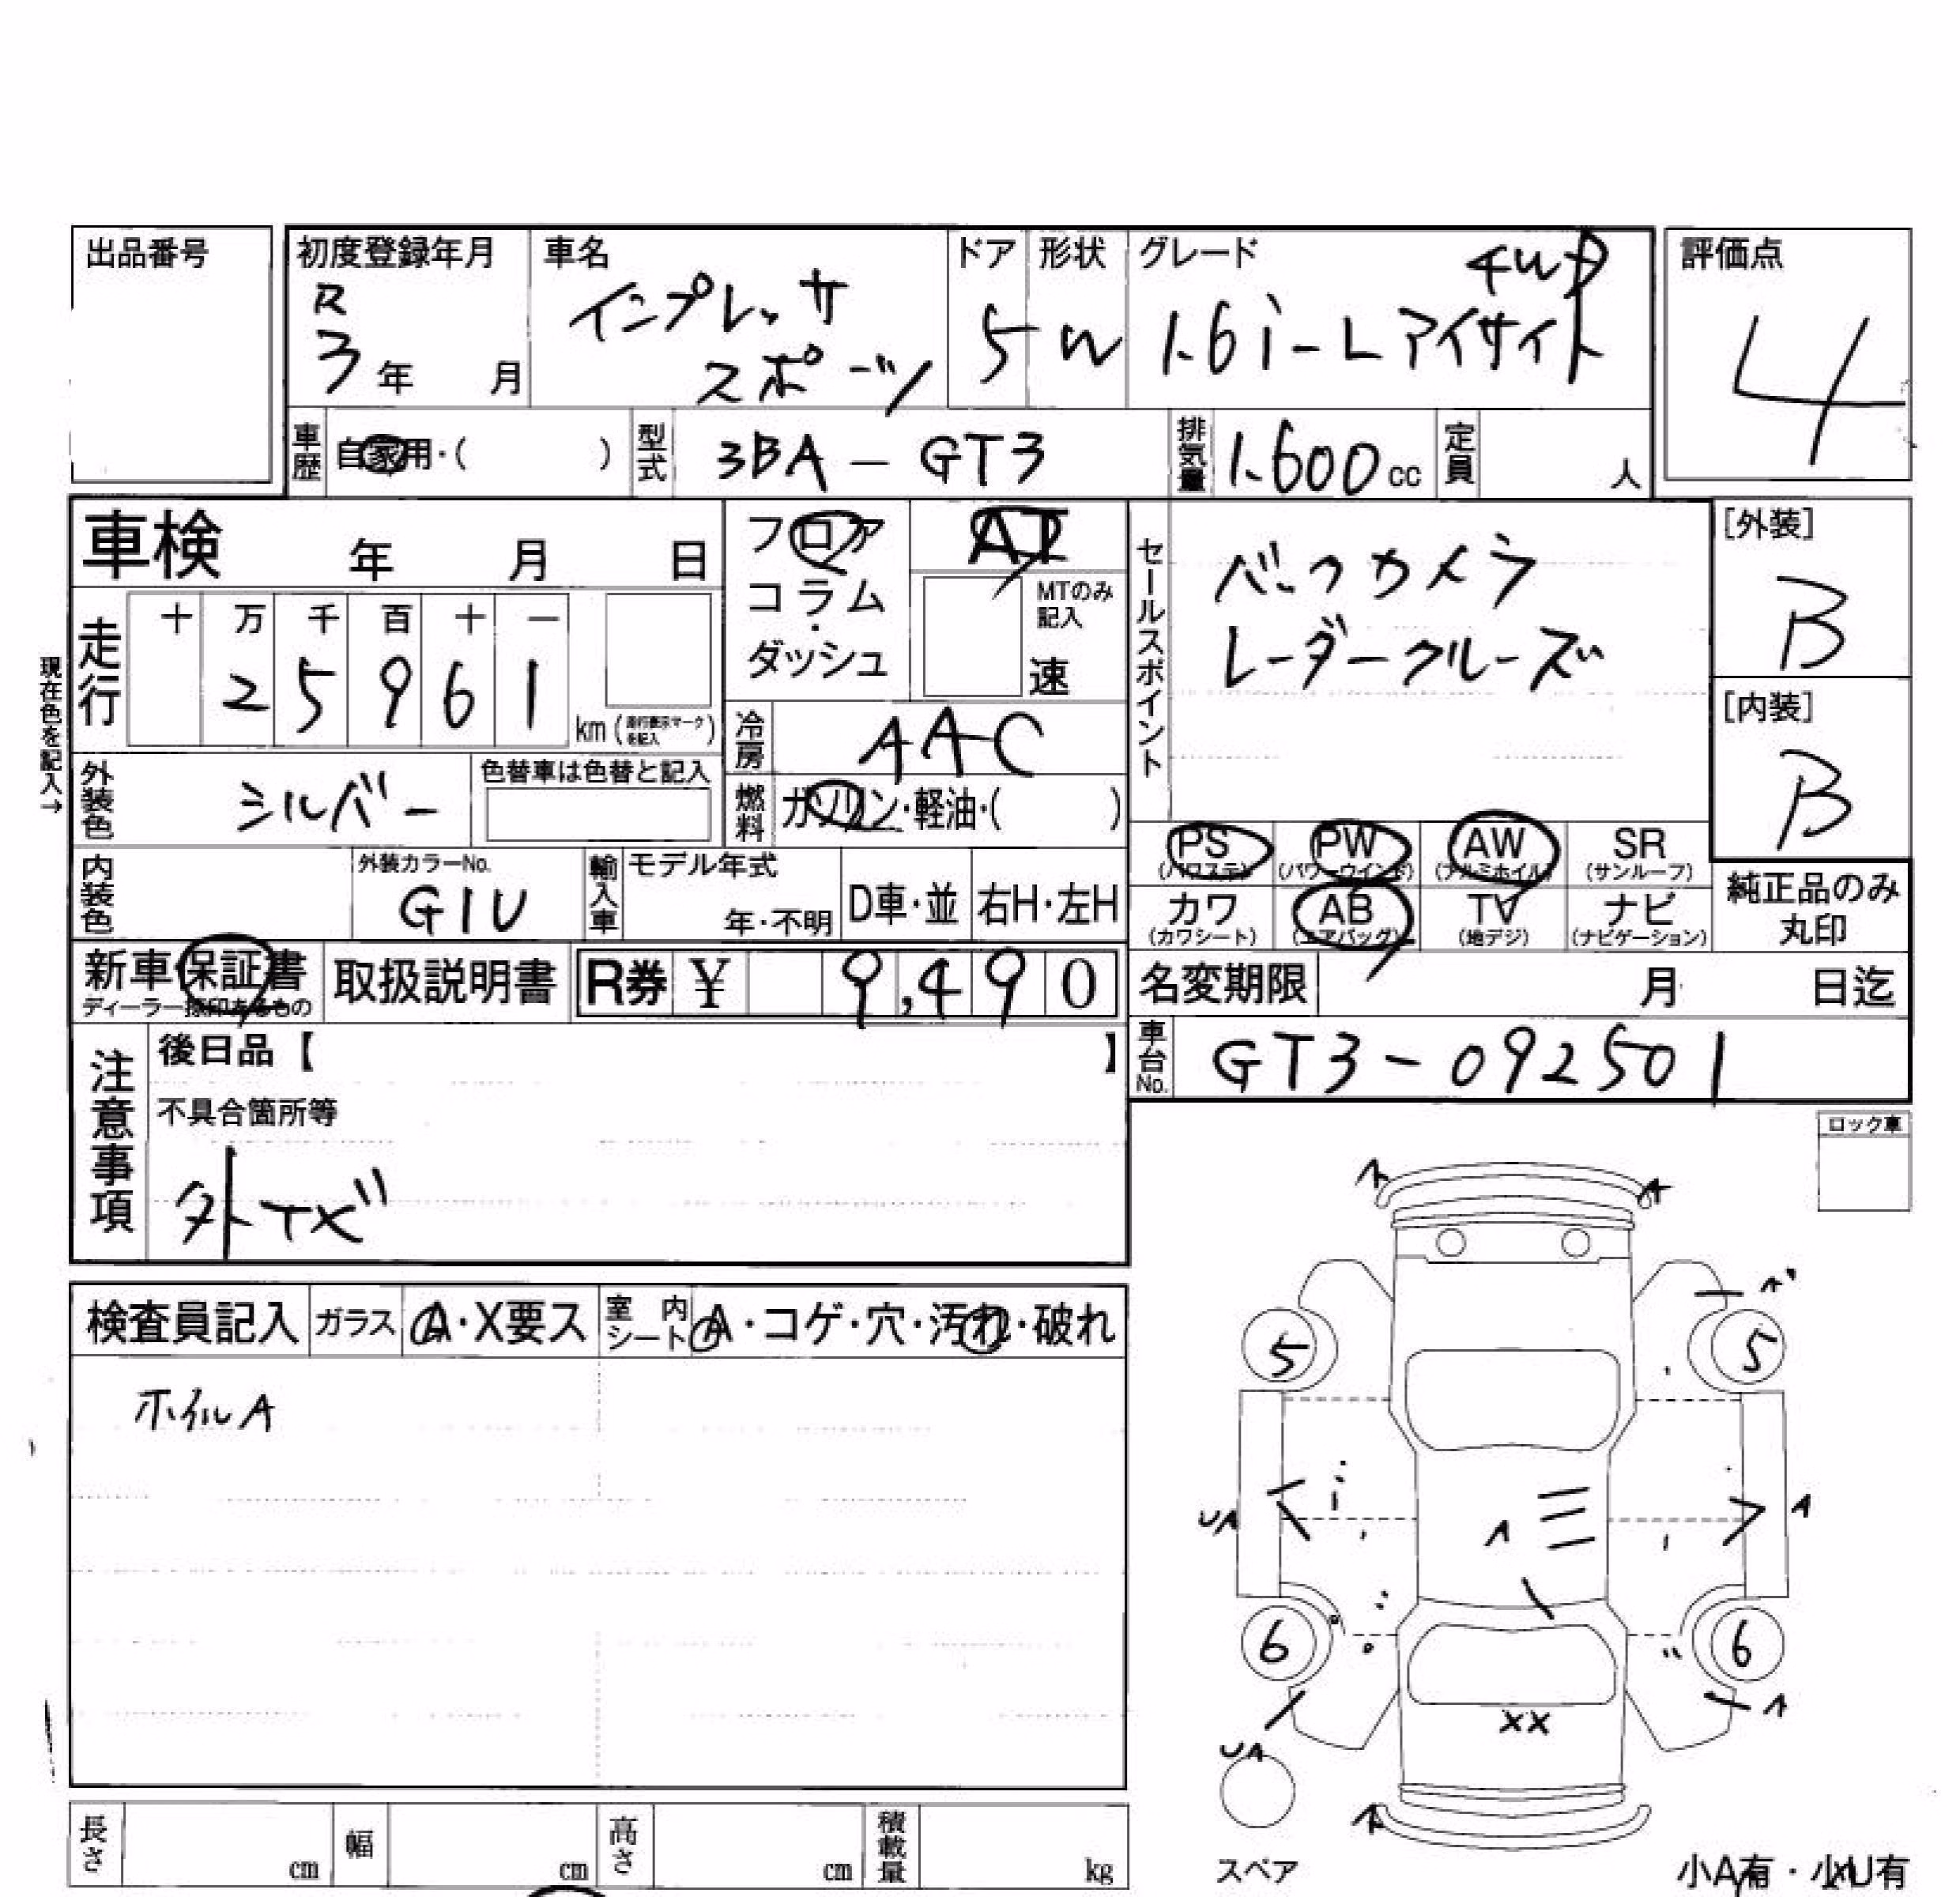 出品番号
初度登録年月
R
3年 月
車名
インプレッサ
スポーツ
ドア
5
形状
W
グレード
4WD
1.6i-Lアイサイト
評価点
4
車歴
自家用・( )
型式
3BA-GT3
排気量
1.600cc
定員
人
車検 年 月 日
フロア
コラム
・
ダッシュ
AT
MTのみ
記入
速
現在色を記入→
走行
十 万 千 百 十 一
2 5 9 6 1
km(走行表示マークを記入)
冷房
AAC
外装色
シルバー
色替車は色替と記入
燃料
ガソリン・軽油・( )
内装色
外装カラーNo.
G1U
輸入車
モデル年式
年・不明
D車・並
右H・左H
セールスポイント
バックカメラ
レーダークルーズ
[外装]
B
[内装]
B
PS
(パワステ)
PW
(パワーウインド)
AW
(アルミホイル)
SR
(サンルーフ)
カワ
(カワシート)
AB
(エアバッグ)
TV
(地デジ)
ナビ
(ナビゲーション)
純正品のみ
丸印
新車保証書
ディーラー捺印あるもの
取扱説明書
R券 ¥ 9,490
名変期限 月 日迄
車台No.
GT3-092501
注意事項
後日品【 】
不具合箇所等
外キズ
ロック車
検査員記入
ガラス
A・X要ス
室内
シート
A・コゲ・穴・汚れ・破れ
ホイルA
A
A
A
5
5
UA
A
A
6
6
A
XX
UA
A
スペア
小A有・小U有
長さ
cm
幅
cm
高さ
cm
積載量
kg